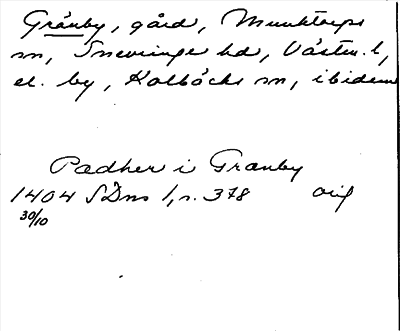 Gränby, gård, Munktorps
sn, Snevringe hd, Västm. l,
el. by, Kolbäcks sn, ibidem
Padher i Granby
1404 SDns 1, n. 378 orig
30/10